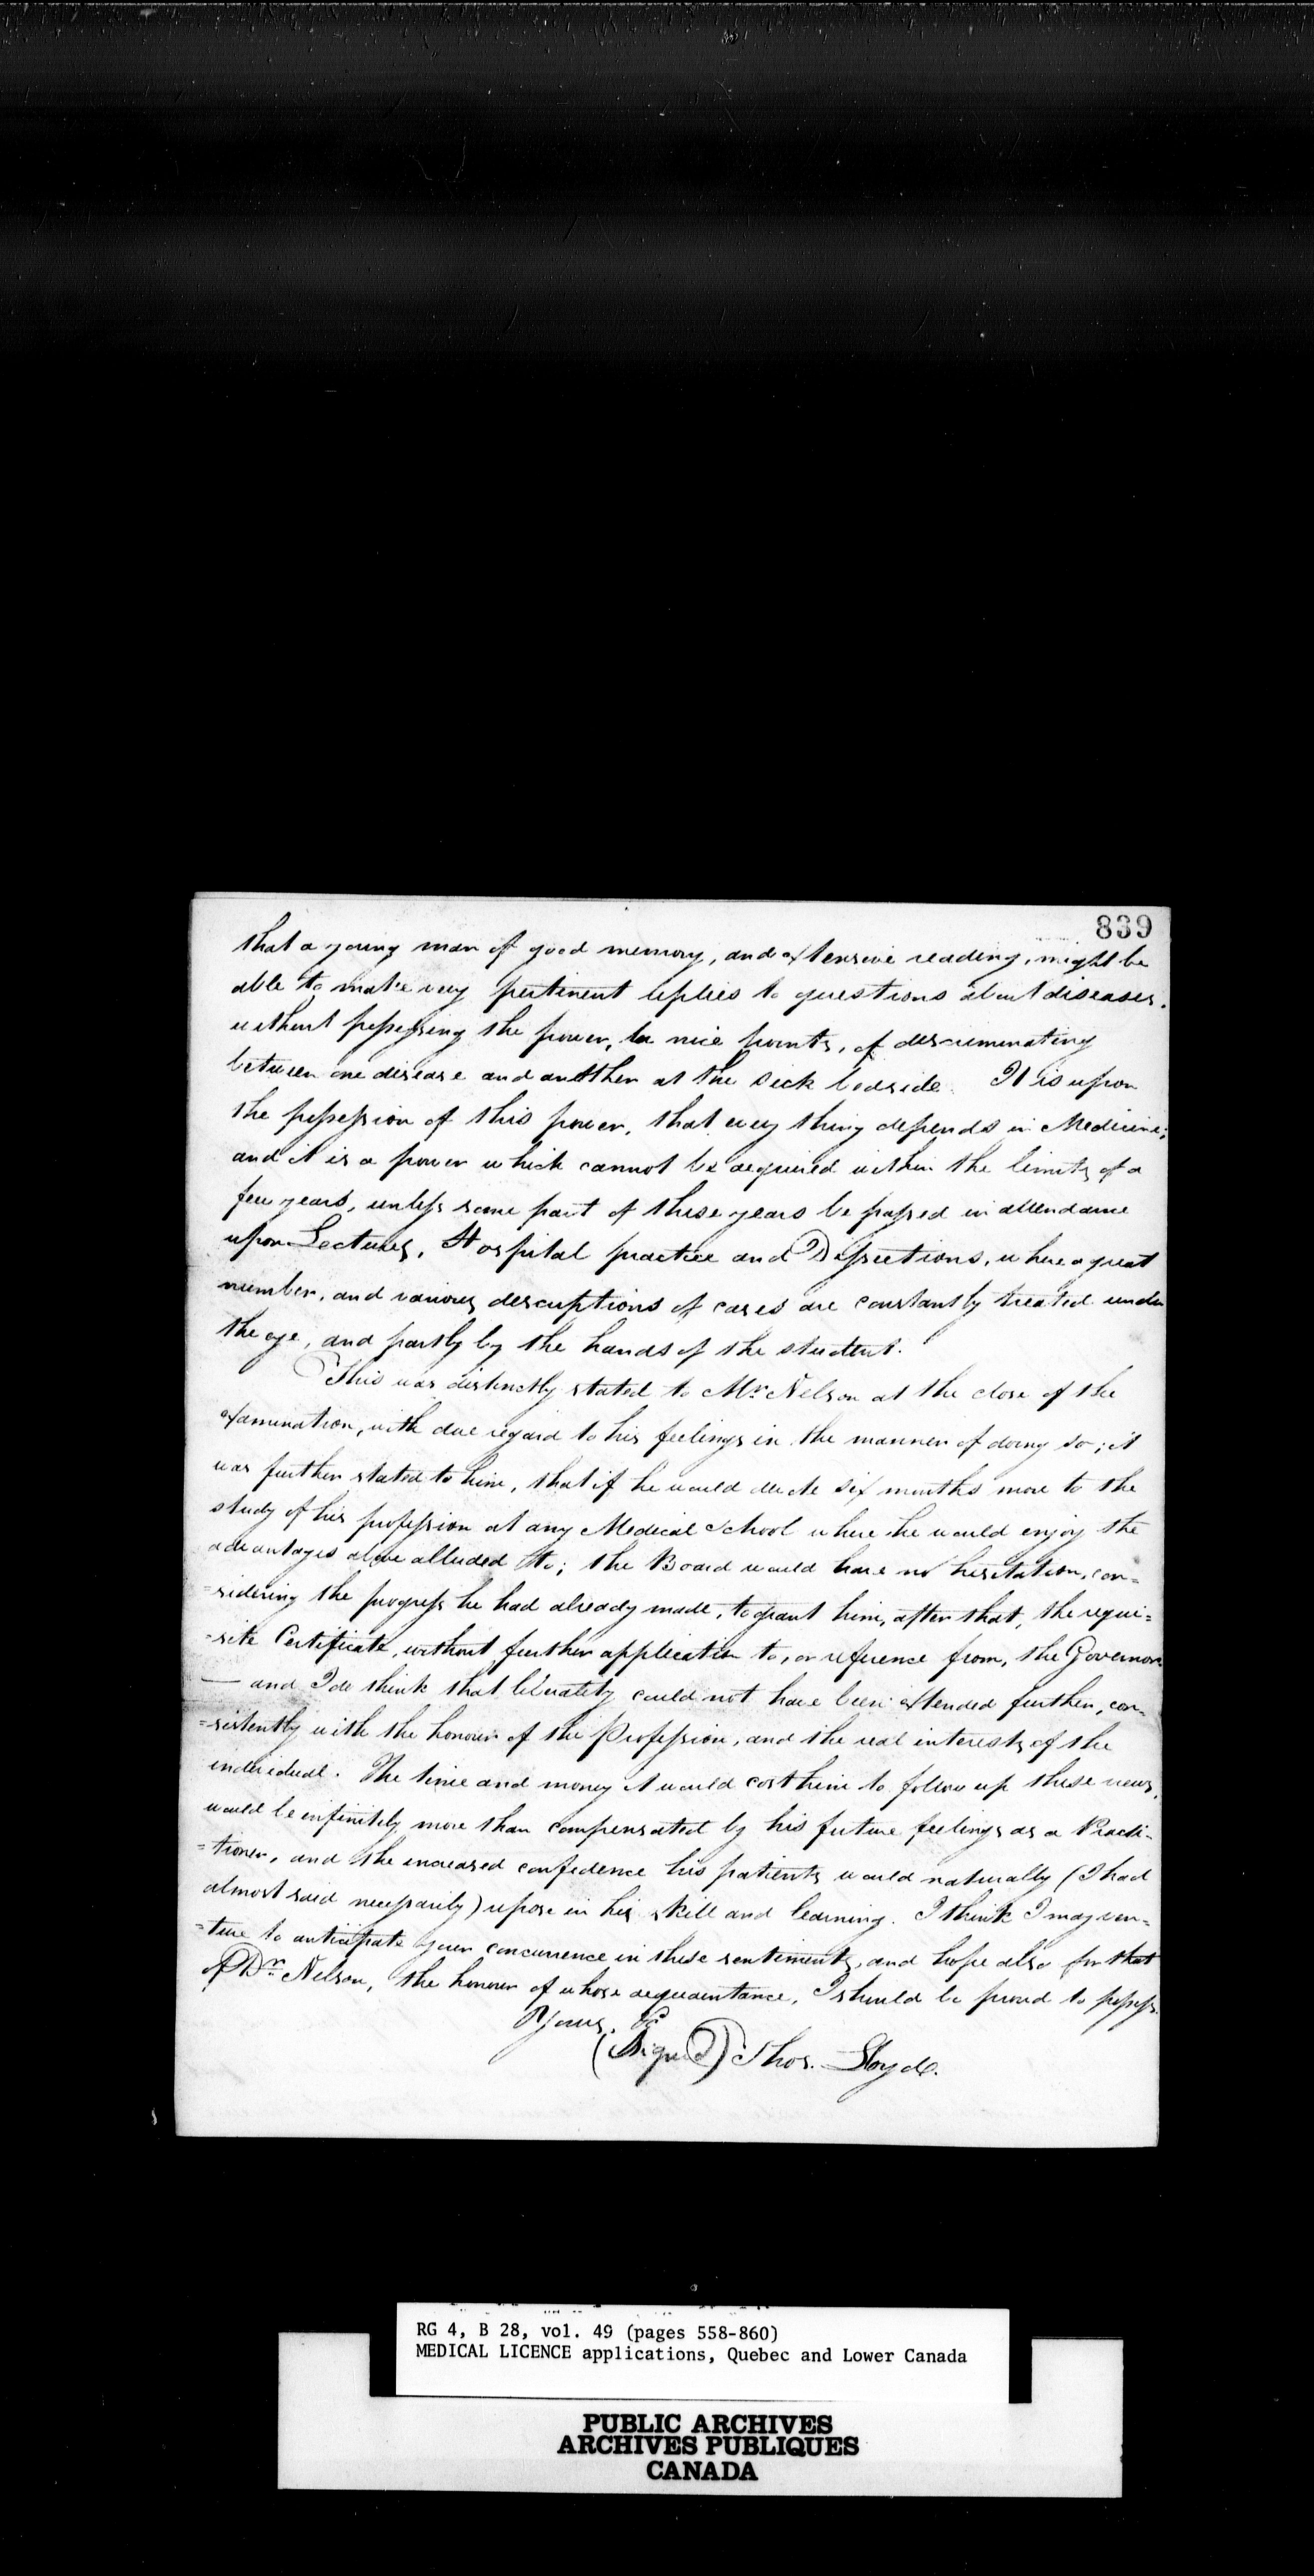 839
that a young man of good memory, and extensive reading, might be
able to make very pertinent replies to questions about diseases.
without possessing the power, in nice points, of descriminating
between one disease and another at the sick bedside. It is upon
the possession of this power, that every thing depends in Medicine;
and it is a power which cannot be acquired within the limits of a
few years, unless some part of these years be passed in attendance
upon Lectures, Hospital practice and Dissections, where a great
number, and various descriptions of cases are constantly treated under
the eye, and partly by the hands of the student.
This was distinctly stated to Mr. Nelson at the close of the
examination, with due regard to his feelings in the manner of doing so; it
was further stated to him, that if he would devote six months more to the
study of his profession at any Medical School where he would enjoy the
advantages above alluded to; the Board would have no hesitation, con=
=sidering the progress he had already made, to grant him, after that, the requi=
=site Certificate, without further application to, or reference from, the Governor
— and I do think that liberality could not have been extended further, con=
=sistently with the honour of the Profession, and the real interests of the
individual. The time and money it would cost him to follow up these views,
would be infinitely more than compensated by his future feelings as a Practi=
=tioner, and the increased confidence his patients would naturally (I had
almost said necessarily) repose in his skill and learning. I think I may ven=
=ture to anticipate your concurrence in these sentiments, and hope also for that
of Dr. Nelson, the honour of whose acquaintance, I should be proud to possess.
Yours, &c
(Signed) Thos. Lloyd.
RG 4, B 28, vol. 49 (pages 558-860)
MEDICAL LICENCE applications, Quebec and Lower Canada
PUBLIC ARCHIVES
ARCHIVES PUBLIQUES
CANADA